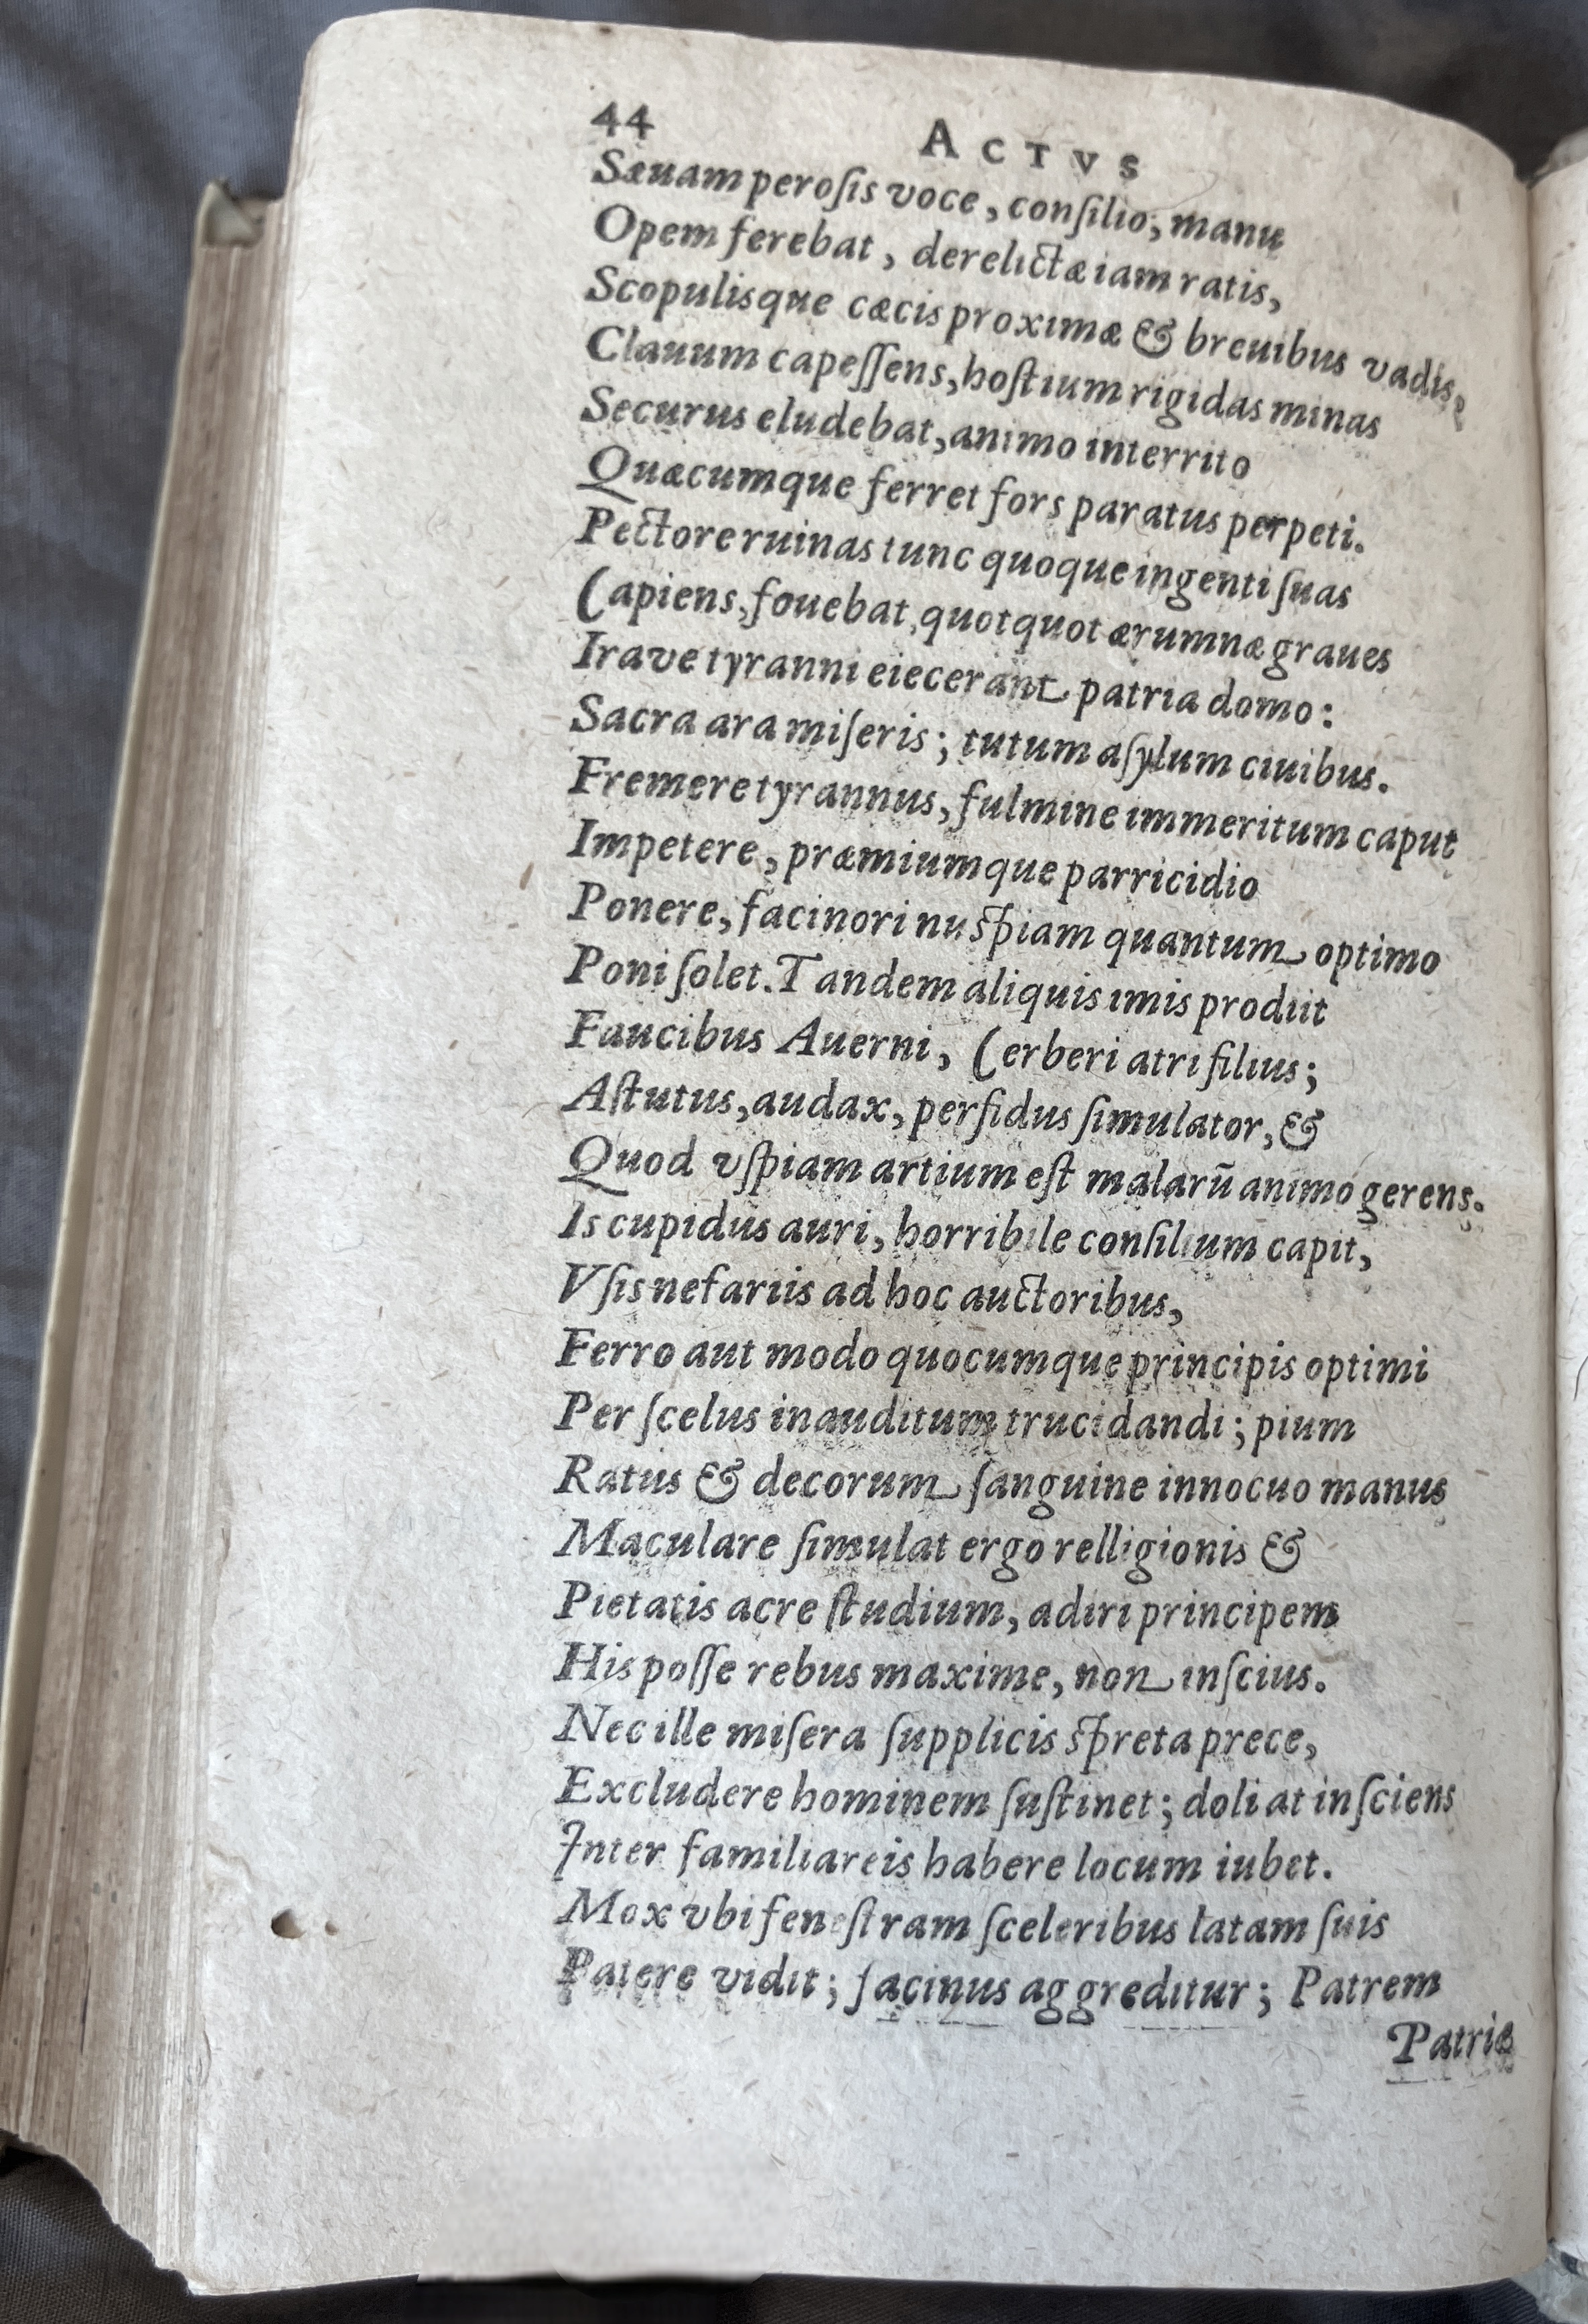 44 ACTVS
Sæuam perosis voce, consilio, manu
Opem ferebat, derelictæ iam ratis,
Scopulisque cæcis proximæ & breuibus vadis,
Clauum capessens, hostium rigidas minas
Securus eludebat, animo interrito
Quæcumque ferret fors paratus perpeti.
Pectore ruinas tunc quoque ingenti suas
Capiens, fouebat, quotquot ærumnæ graues
Irave tyranni eiecerant patria domo:
Sacra ara miseris; tutum asylum ciuibus.
Fremere tyrannus, fulmine immeritum caput
Impetere, præmiumque parricidio
Ponere, facinori nuspiam quantum optimo
Poni solet. Tandem aliquis imis prodiit
Faucibus Auerni, Cerberi atri filius;
Astutus, audax, perfidus simulator, &
Quod vspiam artium est malarū animo gerens.
Is cupidus auri, horribile consilium capit,
Vsis nefariis ad hoc auctoribus,
Ferro aut modo quocumque principis optimi
Per scelus inauditum trucidandi; pium
Ratus & decorum sanguine innocuo manus
Maculare simulat ergo relligionis &
Pietatis acre studium, adiri principem
His posse rebus maxime, non inscius.
Nec ille misera supplicis spreta prece,
Excludere hominem sustinet; doli at insciens
Inter familiareis habere locum iubet.
Mox vbi fenestram sceleribus latam suis
Patere vidit; facinus aggreditur; Patrem
Patriæ